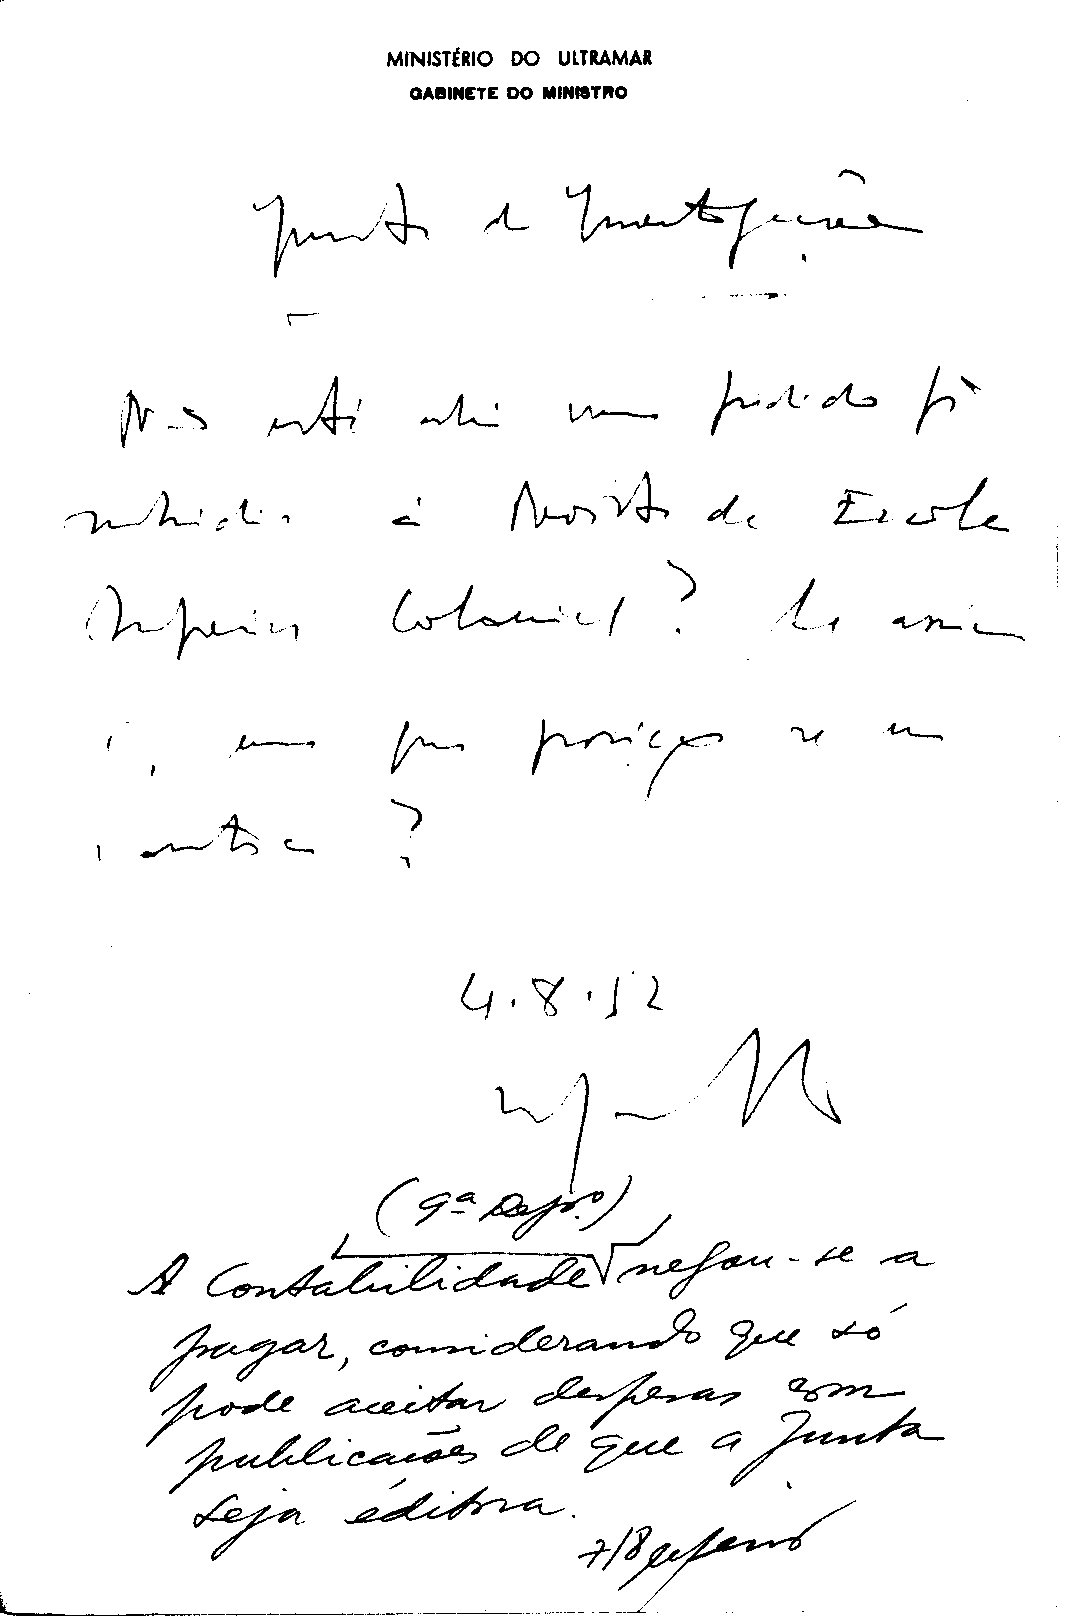 MINISTÉRIO DO ULTRAMAR
GABINETE DO MINISTRO
Junta de Investigações
Não está ahi um pedido pª
subsidio à Revista da Escola
Superior Colonial? Se assim
é, em que posição se en
contra?
4.8.52
(9ª Repº)
A Contabilidade negou-se a
pagar, considerando que só
pode aceitar despesas com
publicações de que a Junta
seja editora.
7/8